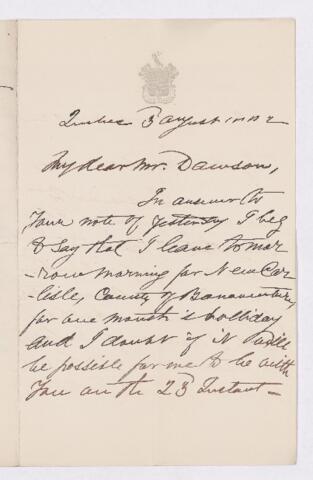 Quebec 3 august 1882
My dear Mr. Dawson,
In answer to
Your note of yesterday I beg
to say that I leave tomor
-row morning for New Car
-lisle, County of Bonaventure
for one month's holliday
and I doubt if it will
be possible for me to be with
You on the 23 Instant -